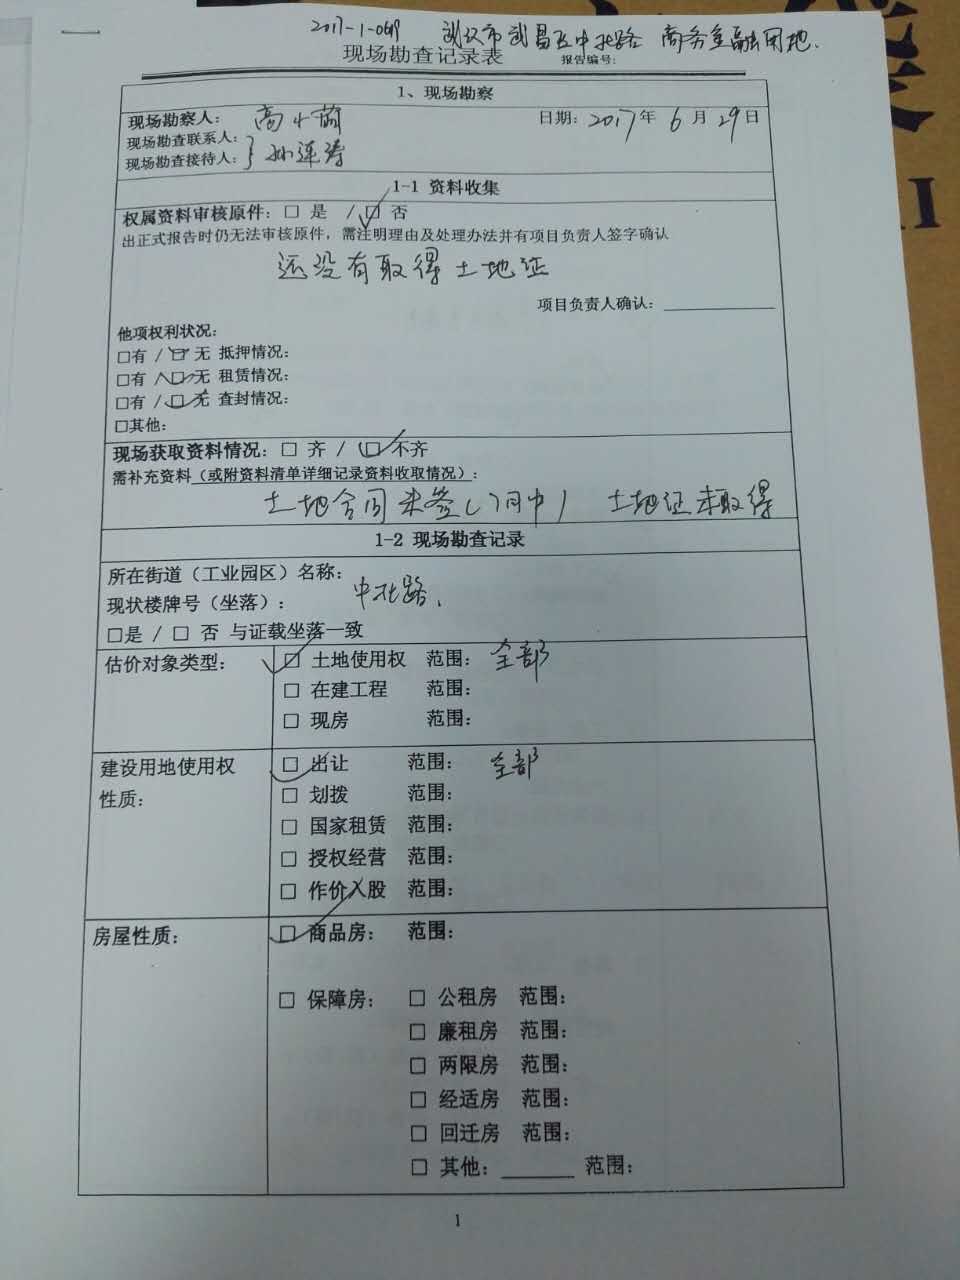 2017-1-0619 武汉市武昌区中北路 商务金融用地.
现场勘查记录表 报告编号:
1、现场勘察
现场勘察人: 高小萌 日期: 2017年 6 月 29日
现场勘查联系人:
现场勘查接待人: } 孙连涛
1-1 资料收集
权属资料审核原件: □ 是 / □ 否
出正式报告时仍无法审核原件，需注明理由及处理办法并有项目负责人签字确认
还没有取得土地证
项目负责人确认:
他项权利状况:
□有 / □ 无 抵押情况:
□有 / □ 无 租赁情况:
□有 / □ 无 查封情况:
□其他:
现场获取资料情况: □ 齐 / □ 不齐
需补充资料（或附资料清单详细记录资料收取情况）:
土地合同未签(7月中) 土地证未取得
1-2 现场勘查记录
所在街道（工业园区）名称:
现状楼牌号（坐落）: 中北路、
□是 / □ 否 与证载坐落一致
估价对象类型: □ 土地使用权 范围: 全部
□ 在建工程 范围:
□ 现房 范围:
建设用地使用权 □ 出让 范围: 全部
性质: □ 划拨 范围:
□ 国家租赁 范围:
□ 授权经营 范围:
□ 作价入股 范围:
房屋性质: □ 商品房: 范围:
□ 保障房: □ 公租房 范围:
□ 廉租房 范围:
□ 两限房 范围:
□ 经适房 范围:
□ 回迁房 范围:
□ 其他: 范围:
1